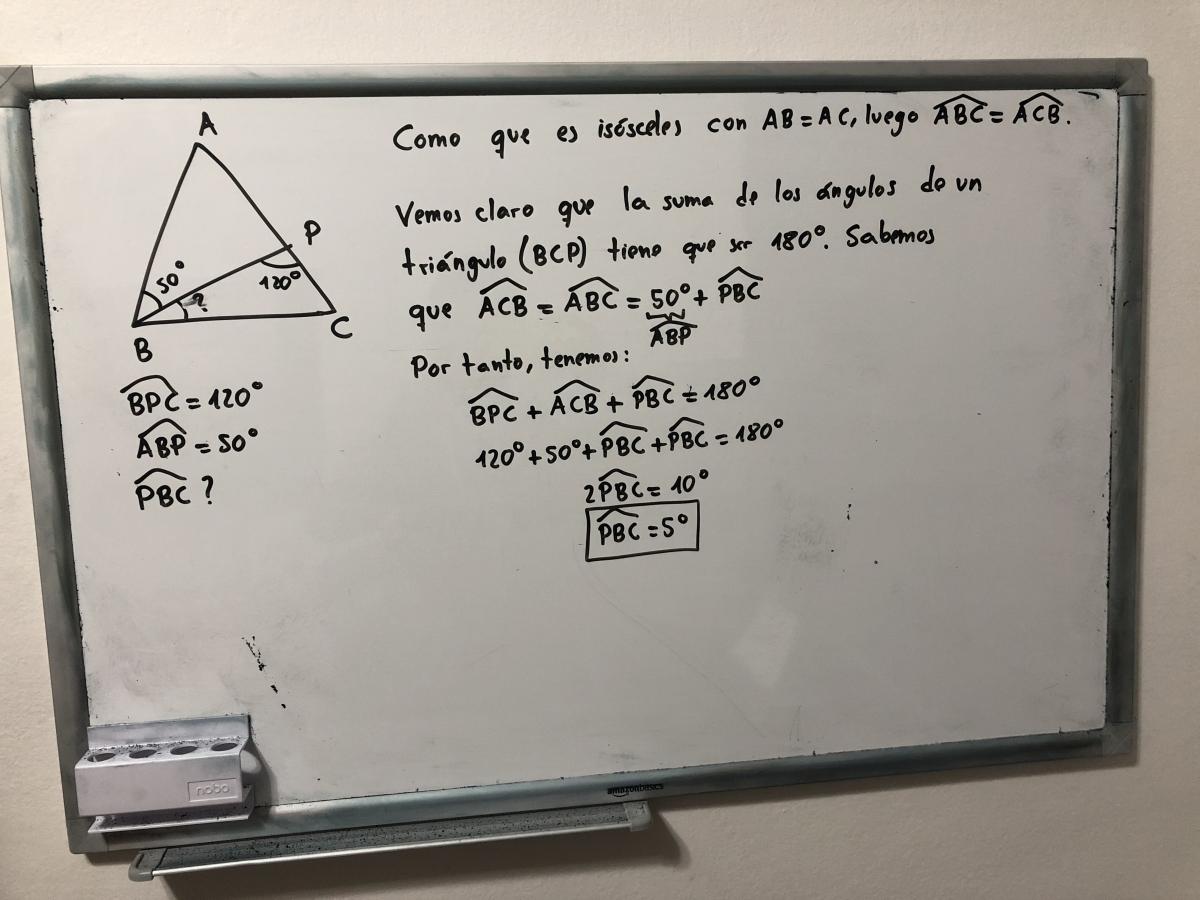 A
P
50°
120°
?
B
C
BPC = 120°
ABP = 50°
PBC ?
Como que es isósceles con AB = AC, luego ABC = ACB.
Vemos claro que la suma de los ángulos de un
triángulo (BCP) tiene que ser 180°. Sabemos
que ACB = ABC = 50° + PBC
ABP
Por tanto, tenemos:
BPC + ACB + PBC = 180°
120° + 50° + PBC + PBC = 180°
2PBC = 10°
PBC = 5°
nobo
amazonbasics